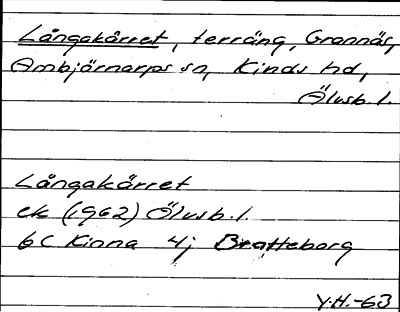 Långakärret, terräng, Grannäs,
Ambjörnarps sn, Kinds hd,
Älvsb. l.
Långakärret
ek (1962) Älvsb. l.
6C Kinna 4j Bratteborg
Y.H.-63